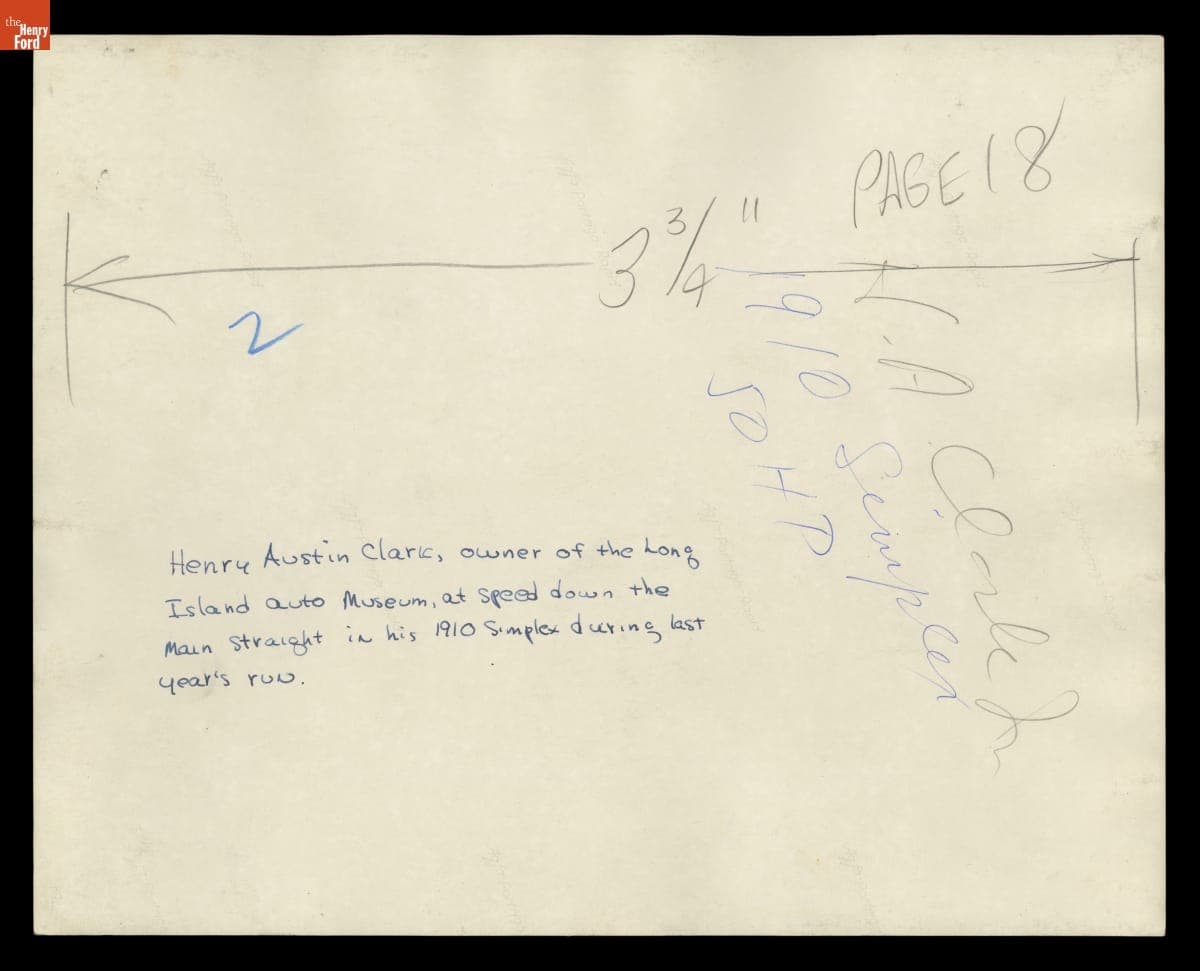 the
Henry
Ford
PAGE 18
3 3/4"
2
H.A Clark Jr
1910 Simplex
50 HP
Henry Austin Clark, owner of the Long
Island auto Museum, at speed down the
Main straight in his 1910 Simplex during last
year's run.